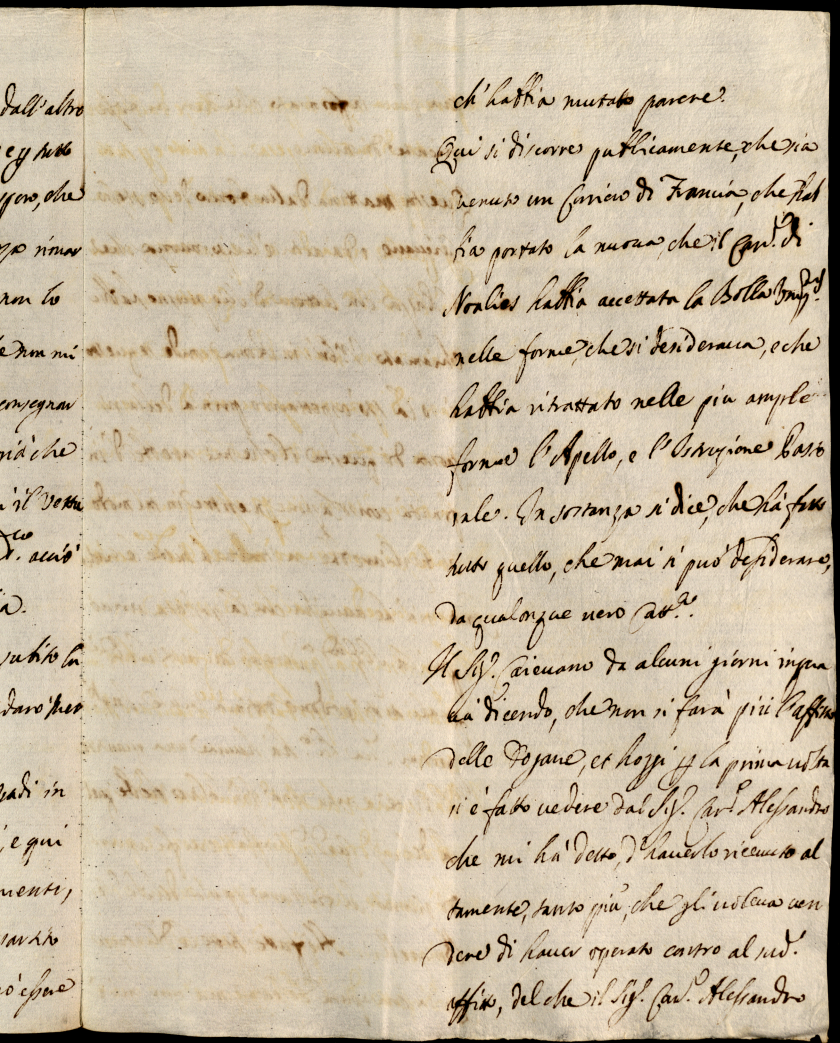 dall'altro
e p tutto
spero, che
rimar
non lo
e non mi
consegnar
che
il Vettu
acciò
subito la
darò
in
, e qui
menti,
essere
ch'habbia mutato parere.
Qui si discorre publicamente, che sia
venuto un Corriero di Francia, che hab
bia portato la nuova, che il Car.l di
Noalies habbia accettata la Bolla
nelle forme, che si desiderava, e che
habbia ritrattato nelle piu ample
forme l'Apello, e l'Istruzione Pasto
rale. In sostanza si dice, che hà fatto
tutto quello, che mai si può desiderare,
da qualonque vero Catt.co.
Il Sig.r da alcuni giorni in qua
và dicendo, che non si farà più l'affitto
delle Dogane, et hoggi p la prima volta
si è fatto vedere dal Sig.r Card.l Alessandro
che mi hà detto, d'haverlo ricevuto al
tamente, tanto più, che gli voleva ven
dere di haver operato contro al sud.o
affitto, del che il Sig.r Car.l Alessandro